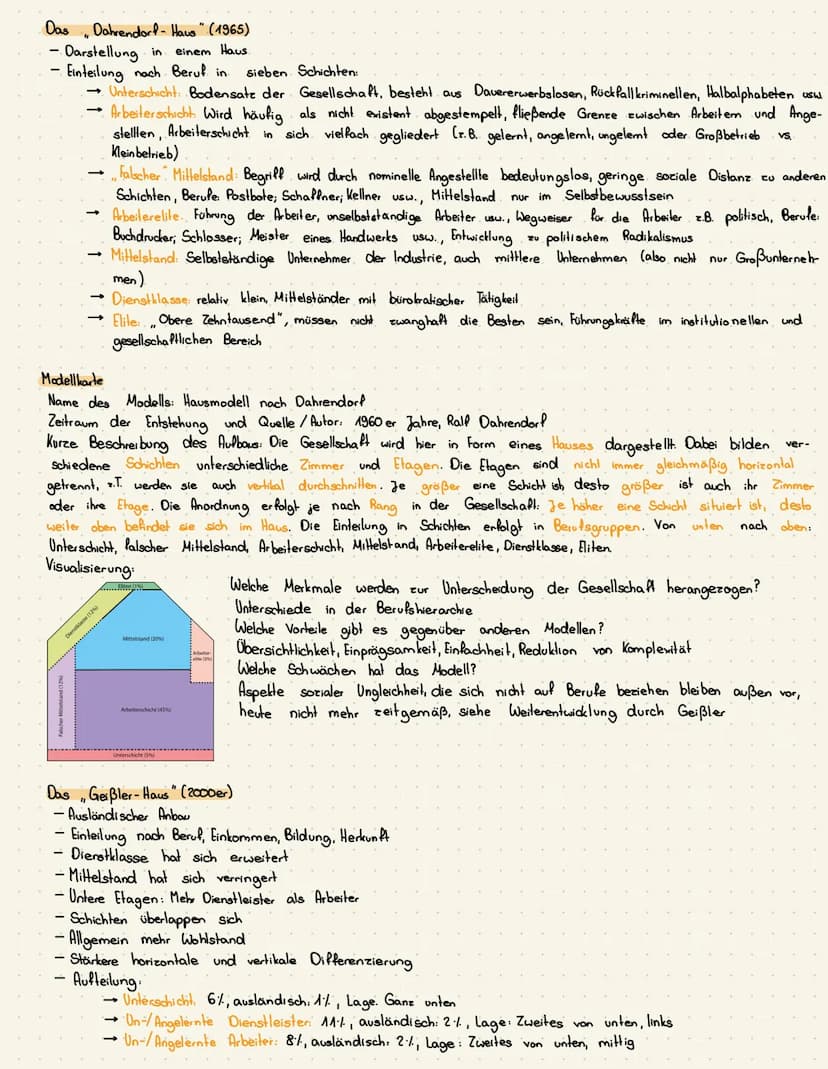 Das „Dahrendorf-Haus" (1965)
- Darstellung in einem Haus
- Einteilung nach Beruf in sieben Schichten:
→ Unterschicht: Bodensatz der Gesellschaft, besteht aus Dauererwerbslosen, Rückfallkriminellen, Halbalphabeten usw
→ Arbeiterschicht: Wird häufig als nicht existent abgestempelt, fließende Grenze zwischen Arbeitern und Ange-
stellten, Arbeiterschicht in sich vielfach gegliedert (z.B. gelernt, angelernt, ungelernt oder Großbetrieb vs.
Kleinbetrieb)
→ „Falscher" Mittelstand: Begriff wird durch nominelle Angestellte bedeutungslos, geringe soziale Distanz zu anderen
Schichten, Berufe: Postbote, Schaffner, Kellner usw., Mittelstand nur im Selbstbewusstsein
→ Arbeiterelite: Führung der Arbeiter, unselbstständige Arbeiter usw., Wegweiser für die Arbeiter z.B. politisch, Berufe:
Buchdrucker, Schlosser, Meister eines Handwerks usw., Entwicklung zu politischem Radikalismus
→ Mittelstand: Selbstständige Unternehmer der Industrie, auch mittlere Unternehmen (also nicht nur Großunterneh-
men)
→ Dienstklasse: relativ klein, Mittelständer mit bürokratischer Tätigkeit
→ Elite: „Obere Zehntausend", müssen nicht zwanghaft die Besten sein, Führungskräfte im institutionellen und
gesellschaftlichen Bereich
Modellkarte
Name des Modells: Hausmodell nach Dahrendorf
Zeitraum der Entstehung und Quelle/Autor: 1960er Jahre, Ralf Dahrendorf
Kurze Beschreibung des Aufbaus: Die Gesellschaft wird hier in Form eines Hauses dargestellt. Dabei bilden ver-
schiedene Schichten unterschiedliche Zimmer und Etagen. Die Etagen sind nicht immer gleichmäßig horizontal
getrennt, z.T. werden sie auch vertikal durchschnitten. Je größer eine Schicht ist, desto größer ist auch ihr Zimmer
oder ihre Etage. Die Anordnung erfolgt je nach Rang in der Gesellschaft: Je höher eine Schicht situiert ist, desto
weiter oben befindet sie sich im Haus. Die Einteilung in Schichten erfolgt in Berufsgruppen. Von unten nach oben:
Unterschicht, falscher Mittelstand, Arbeiterschicht, Mittelstand, Arbeiterelite, Dienstklasse, Eliten
Visualisierung:
Eliten (1%)
Dienstklasse (12%)
Mittelstand (20%)
Arbeiter-
elite (5%)
Falscher Mittelstand (12%)
Arbeiterschicht (45%)
Unterschicht (5%)
Welche Merkmale werden zur Unterscheidung der Gesellschaft herangezogen?
Unterschiede in der Berufshierarchie
Welche Vorteile gibt es gegenüber anderen Modellen?
Übersichtlichkeit, Einprägsamkeit, Einfachheit, Reduktion von Komplexität
Welche Schwächen hat das Modell?
Aspekte sozialer Ungleichheit, die sich nicht auf Berufe beziehen bleiben außen vor,
heute nicht mehr zeitgemäß, siehe Weiterentwicklung durch Geißler
Das „Geißler-Haus" (2000er)
- Ausländischer Anbau
- Einteilung nach Beruf, Einkommen, Bildung, Herkunft
- Dienstklasse hat sich erweitert
- Mittelstand hat sich verringert
- Untere Etagen: Mehr Dienstleister als Arbeiter
- Schichten überlappen sich
- Allgemein mehr Wohlstand
- Stärkere horizontale und vertikale Differenzierung
- Aufteilung:
→ Unterschicht: 6%, ausländisch: 1%, Lage: Ganz unten
→ Un-/Angelernte Dienstleister: 11%, ausländisch: 2%, Lage: Zweites von unten, links
→ Un-/Angelernte Arbeiter: 8%, ausländisch: 2%, Lage: Zweites von unten, mittig